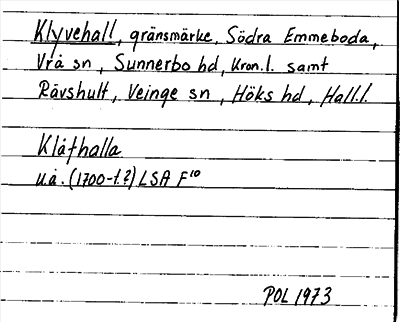 Klyvehall, gränsmärke, Södra Emmeboda,
Vrå sn, Sunnerbo hd, Kron.l. samt
Råvshult, Veinge sn, Höks hd, Hall.l.
Klåfhalla
u.å. (1700-t.?) LSA F¹⁰
POL 1973